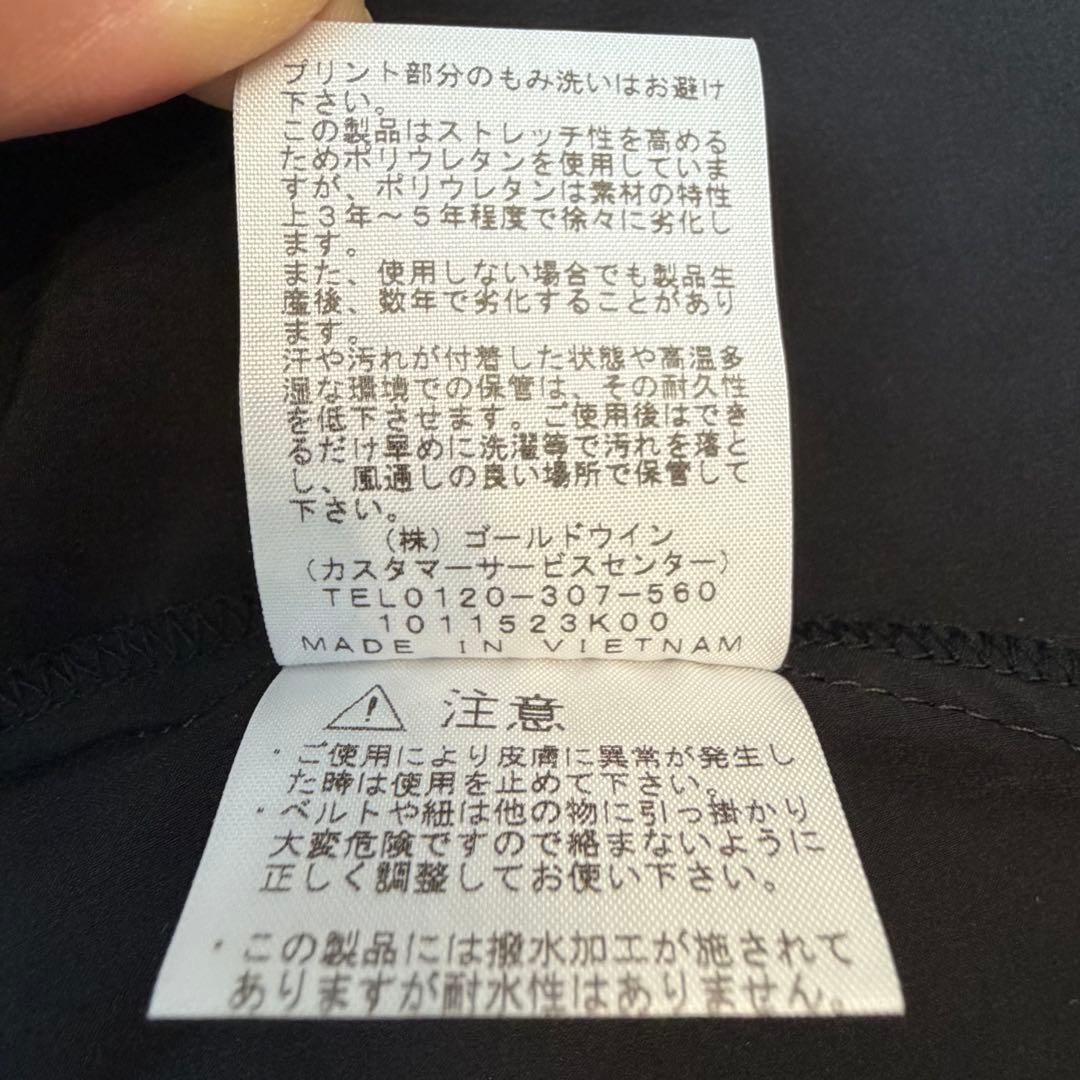 プリント部分のもみ洗いはお避け
下さい。
この製品はストレッチ性を高める
ためポリウレタンを使用していま
すが、ポリウレタンは素材の特性
上3年〜5年程度で徐々に劣化し
ます。
また、使用しない場合でも製品生
産後、数年で劣化することがあり
ます。
汗や汚れが付着した状態や高温多
湿な環境での保管は、その耐久性
を低下させます。ご使用後はでき
るだけ早めに洗濯等で汚れを落と
し、風通しの良い場所で保管して
下さい。
(株)ゴールドウイン
(カスタマーサービスセンター)
TEL0120-307-560
1011523K00
MADE IN VIETNAM
注意
・ご使用により皮膚に異常が発生し
た時は使用を止めて下さい。
・ベルトや紐は他の物に引っ掛かり
大変危険ですので絡まないように
正しく調整してお使い下さい。
・この製品には撥水加工が施されて
ありますが耐水性はありません。